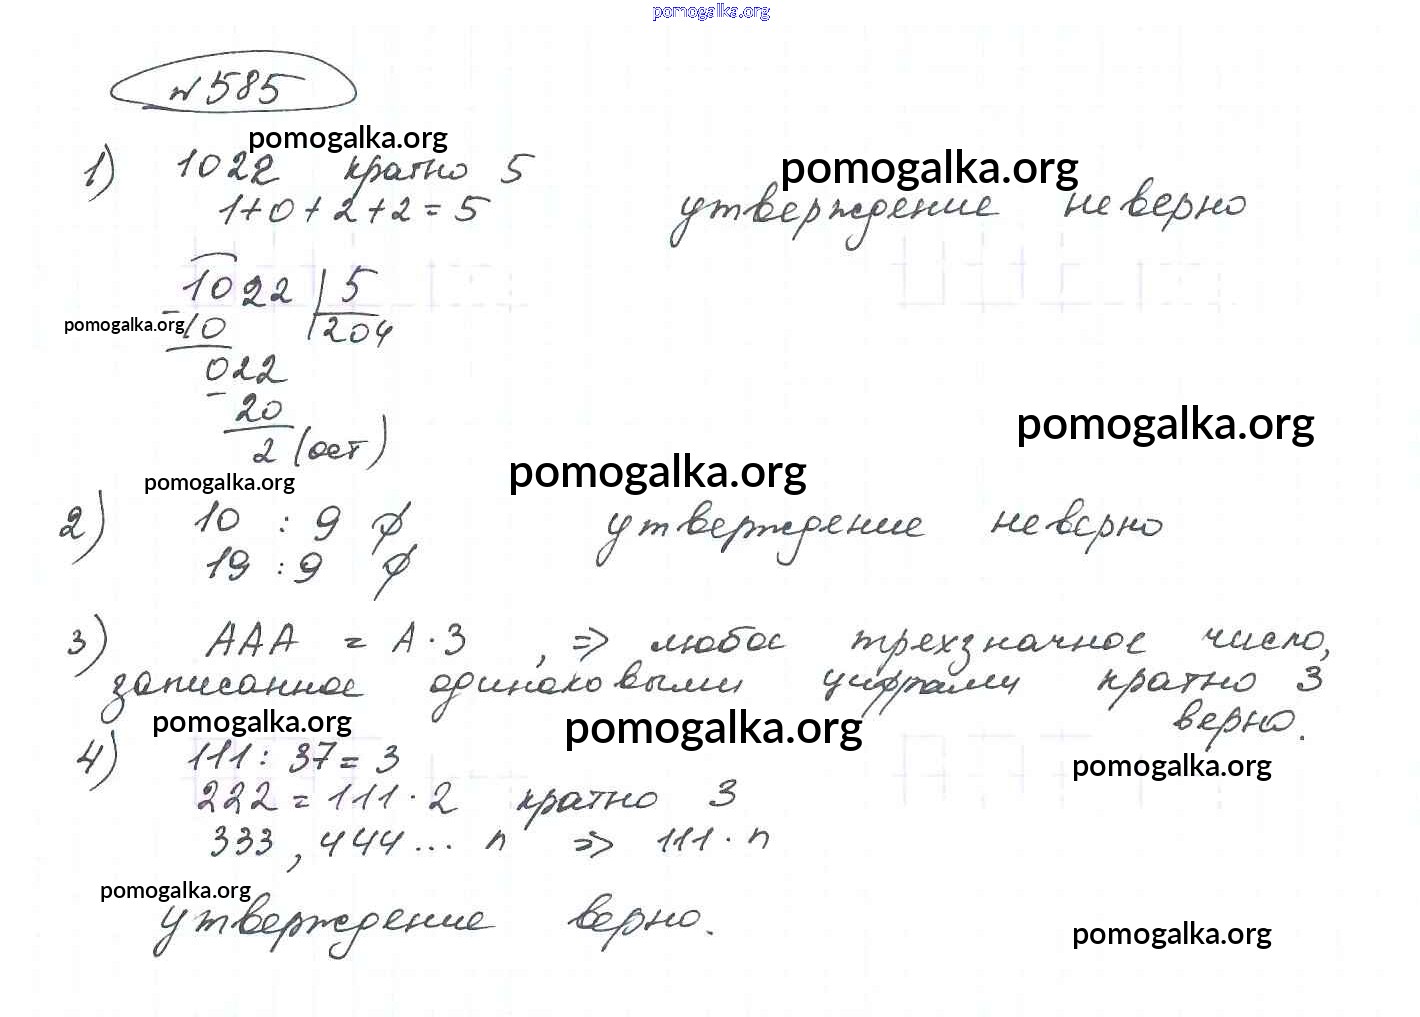 pomogalka.org
№ 585
pomogalka.org
1) 1022 кратно 5
pomogalka.org
1+0+2+2=5 утверждение неверно
1022 | 5
pomogalka.org
-10 204
022
-20
pomogalka.org
2 (ост)
pomogalka.org
pomogalka.org
2) 10 : 9 ∅ утверждение неверно
19 : 9 ∅
3) AAA = A · 3 , => любое трехзначное число,
записанное одинаковыми цифрами кратно 3
pomogalka.org
pomogalka.org
верно.
4) 111 : 37 = 3
pomogalka.org
222 = 111 · 2 кратно 3
333, 444 ... n => 111 · n
pomogalka.org
утверждение верно.
pomogalka.org